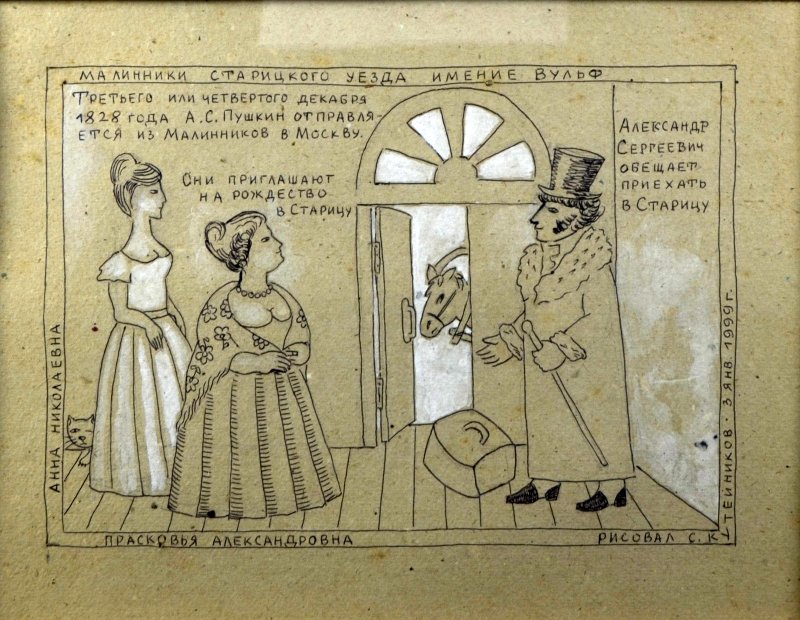 МАЛИННИКИ СТАРИЦКОГО УЕЗДА ИМЕНИЕ ВУЛЬФ
ТРЕТЬЕГО ИЛИ ЧЕТВЕРТОГО ДЕКАБРЯ
1828 ГОДА А.С. ПУШКИН ОТПРАВЛЯ-
ЕТСЯ ИЗ МАЛИННИКОВ В МОСКВУ.
ОНИ ПРИГЛАШАЮТ
НА РОЖДЕСТВО
В СТАРИЦУ
АЛЕКСАНДР
СЕРГЕЕВИЧ
ОБЕЩАЕТ
ПРИЕХАТЬ
В СТАРИЦУ
АННА НИКОЛАЕВНА
ПРАСКОВЬЯ АЛЕКСАНДРОВНА
РИСОВАЛ С. КУ
ТЕЙНИКОВ. 3 ЯНВ. 1999 Г.